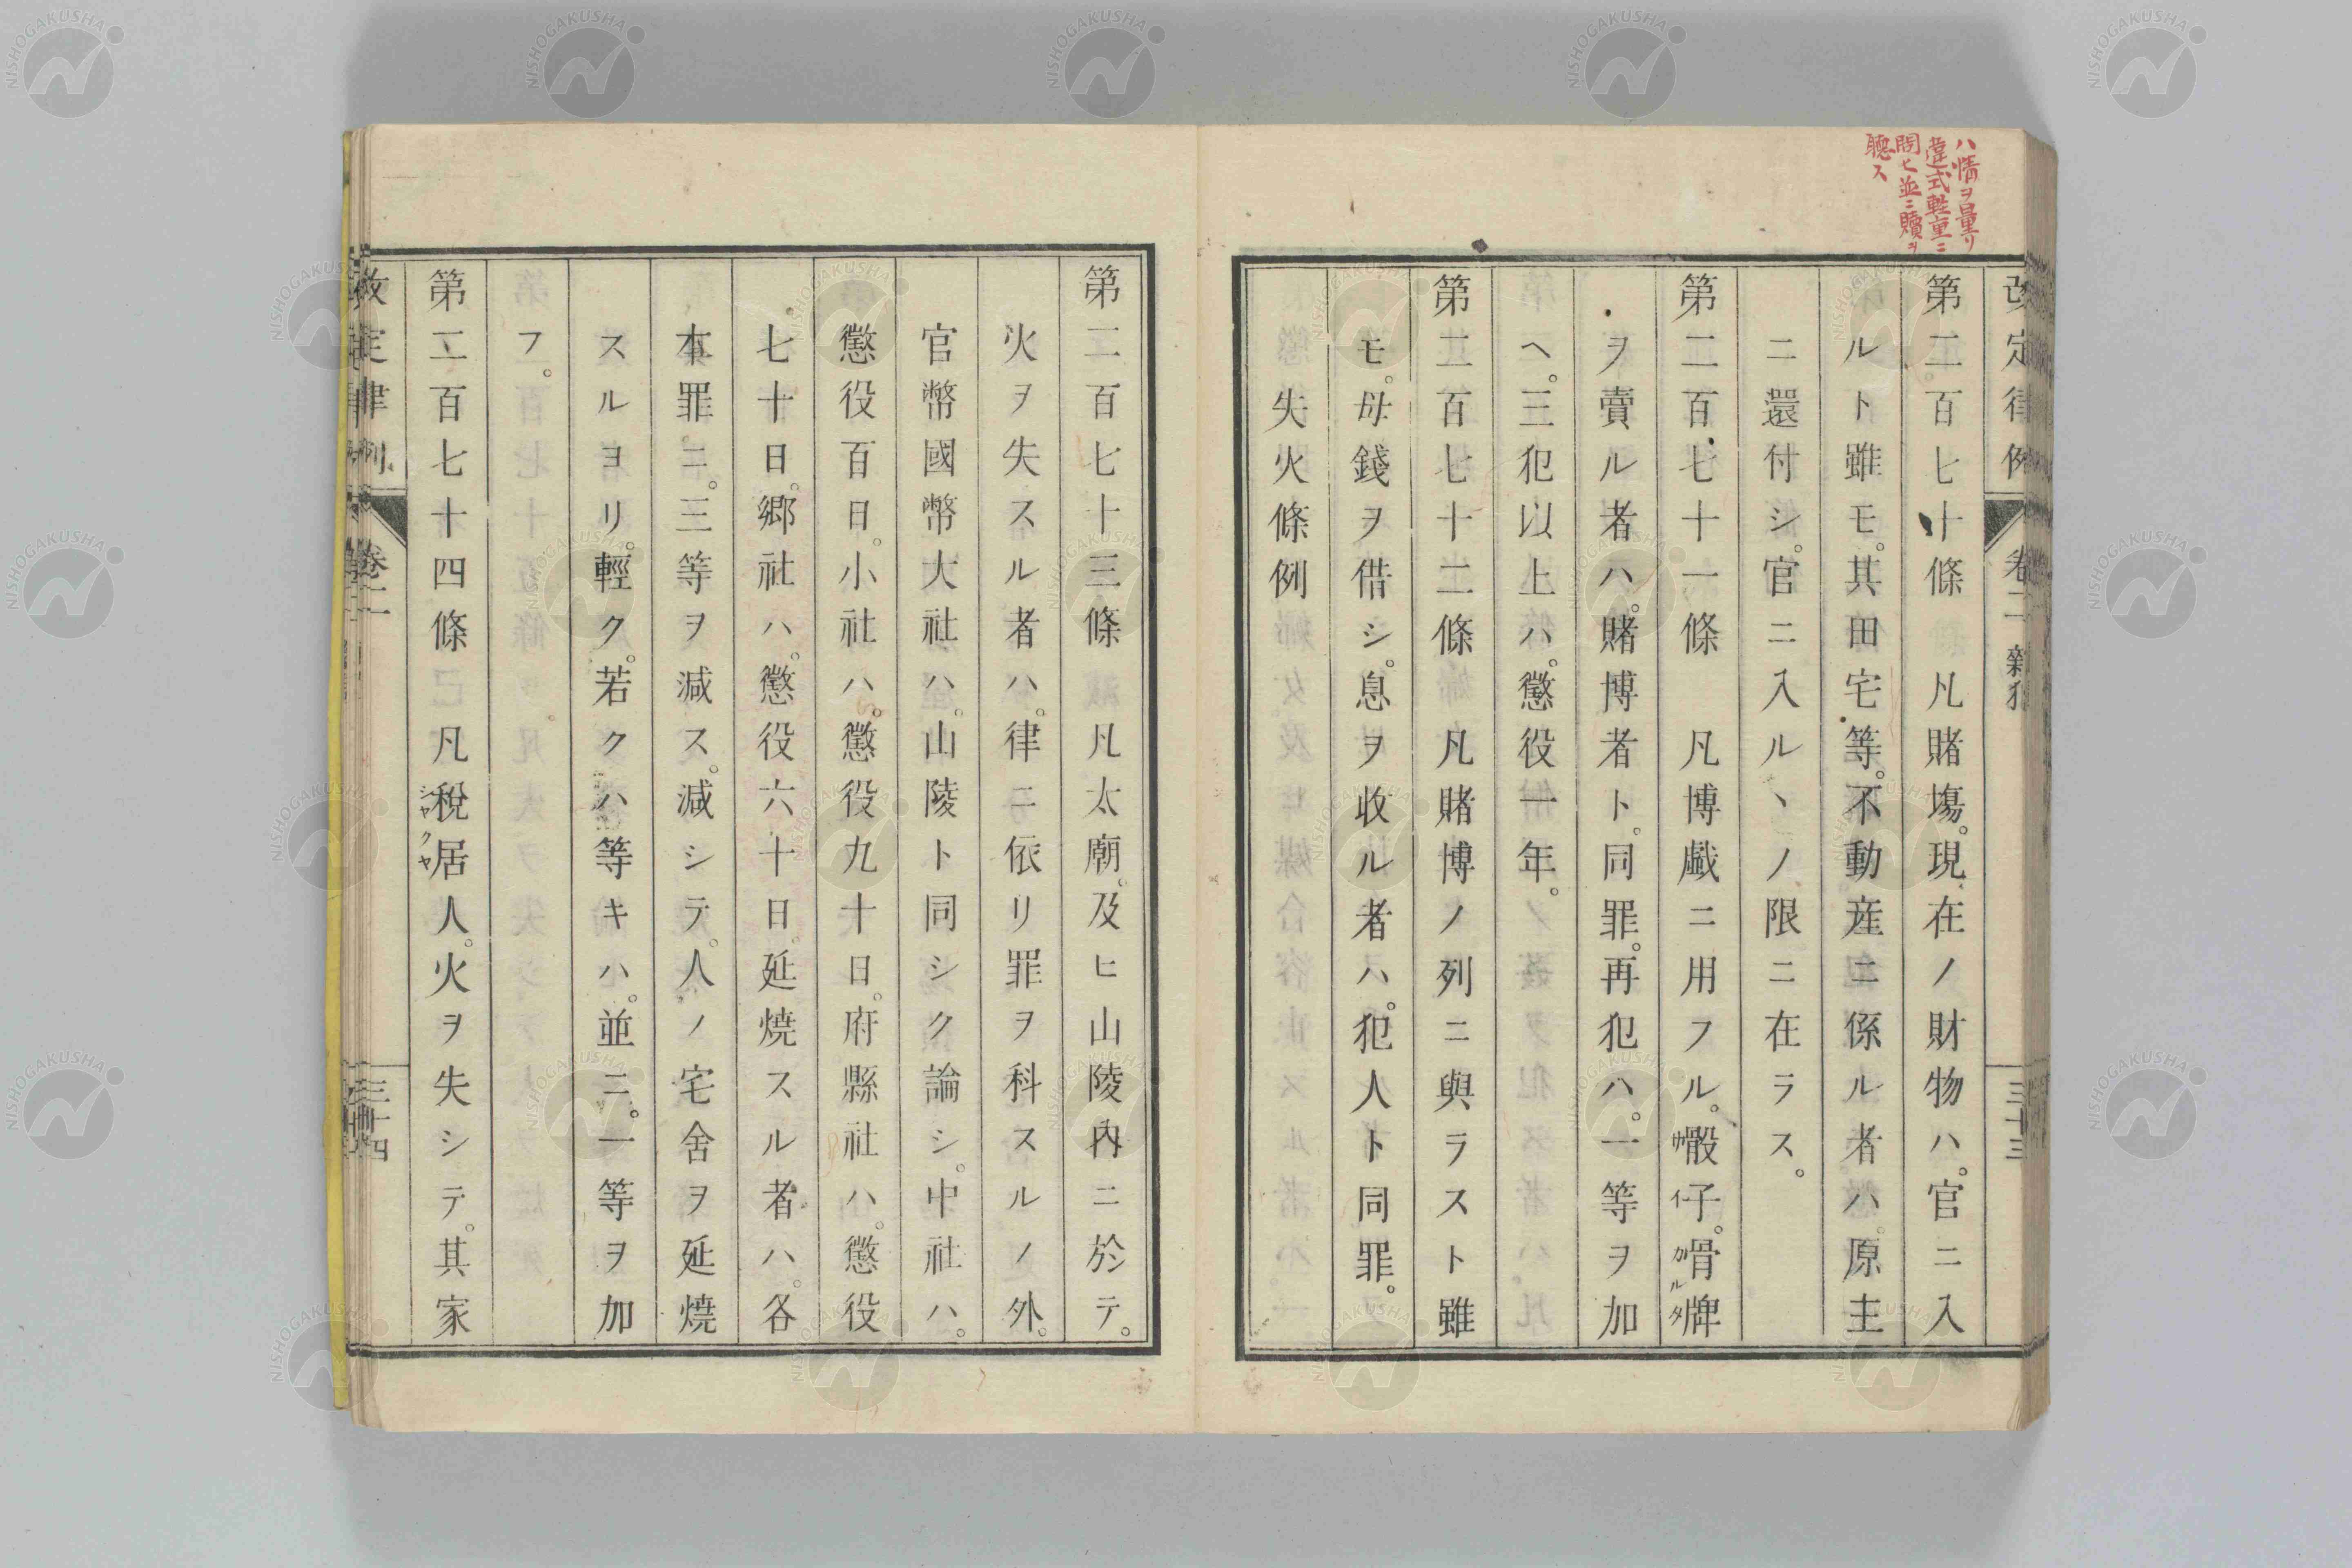 ハ情ヲ量リ
違式軽重ニ
問ヒ並ニ贖ヲ
聴ス
改定律例 卷二 雜犯 三十三
第二百七十條 凡賭塲。現在ノ財物ハ。官ニ入
ルト雖モ。其田宅等。不動産ニ係ル者ハ。原主
ニ還付シ。官ニ入ルヽノ限ニ在ラス。
第二百七十一條 凡博戲ニ用フル。骰子。骨牌
サイ カルタ
ヲ賣ル者ハ。賭博者ト。同罪。再犯ハ。一等ヲ加
ヘ。三犯以上ハ。懲役一年。
第二百七十二條 凡賭博ノ列ニ與ラスト雖
モ。母錢ヲ借シ。息ヲ收ル者ハ。犯人ト同罪。
失火條例
第二百七十三條 凡太廟。及ヒ山陵內ニ於テ。
火ヲ失スル者ハ。律ニ依リ罪ヲ科スルノ外。
官幣國幣大社ハ。山陵ト同シク論シ。中社ハ。
懲役百日。小社ハ。懲役九十日。府縣社ハ。懲役
七十日。鄉社ハ。懲役六十日。延燒スル者ハ。各
本罪ニ。三等ヲ減ス。減シテ。人ノ宅舍ヲ延燒
スルヨリ。輕ク。若クハ等キハ。並ニ。一等ヲ加
フ。
第二百七十四條 凡稅居人。火ヲ失シテ。其家
シヤクヤ
改定律例 卷二 三十四
NISHOGAKUSHA